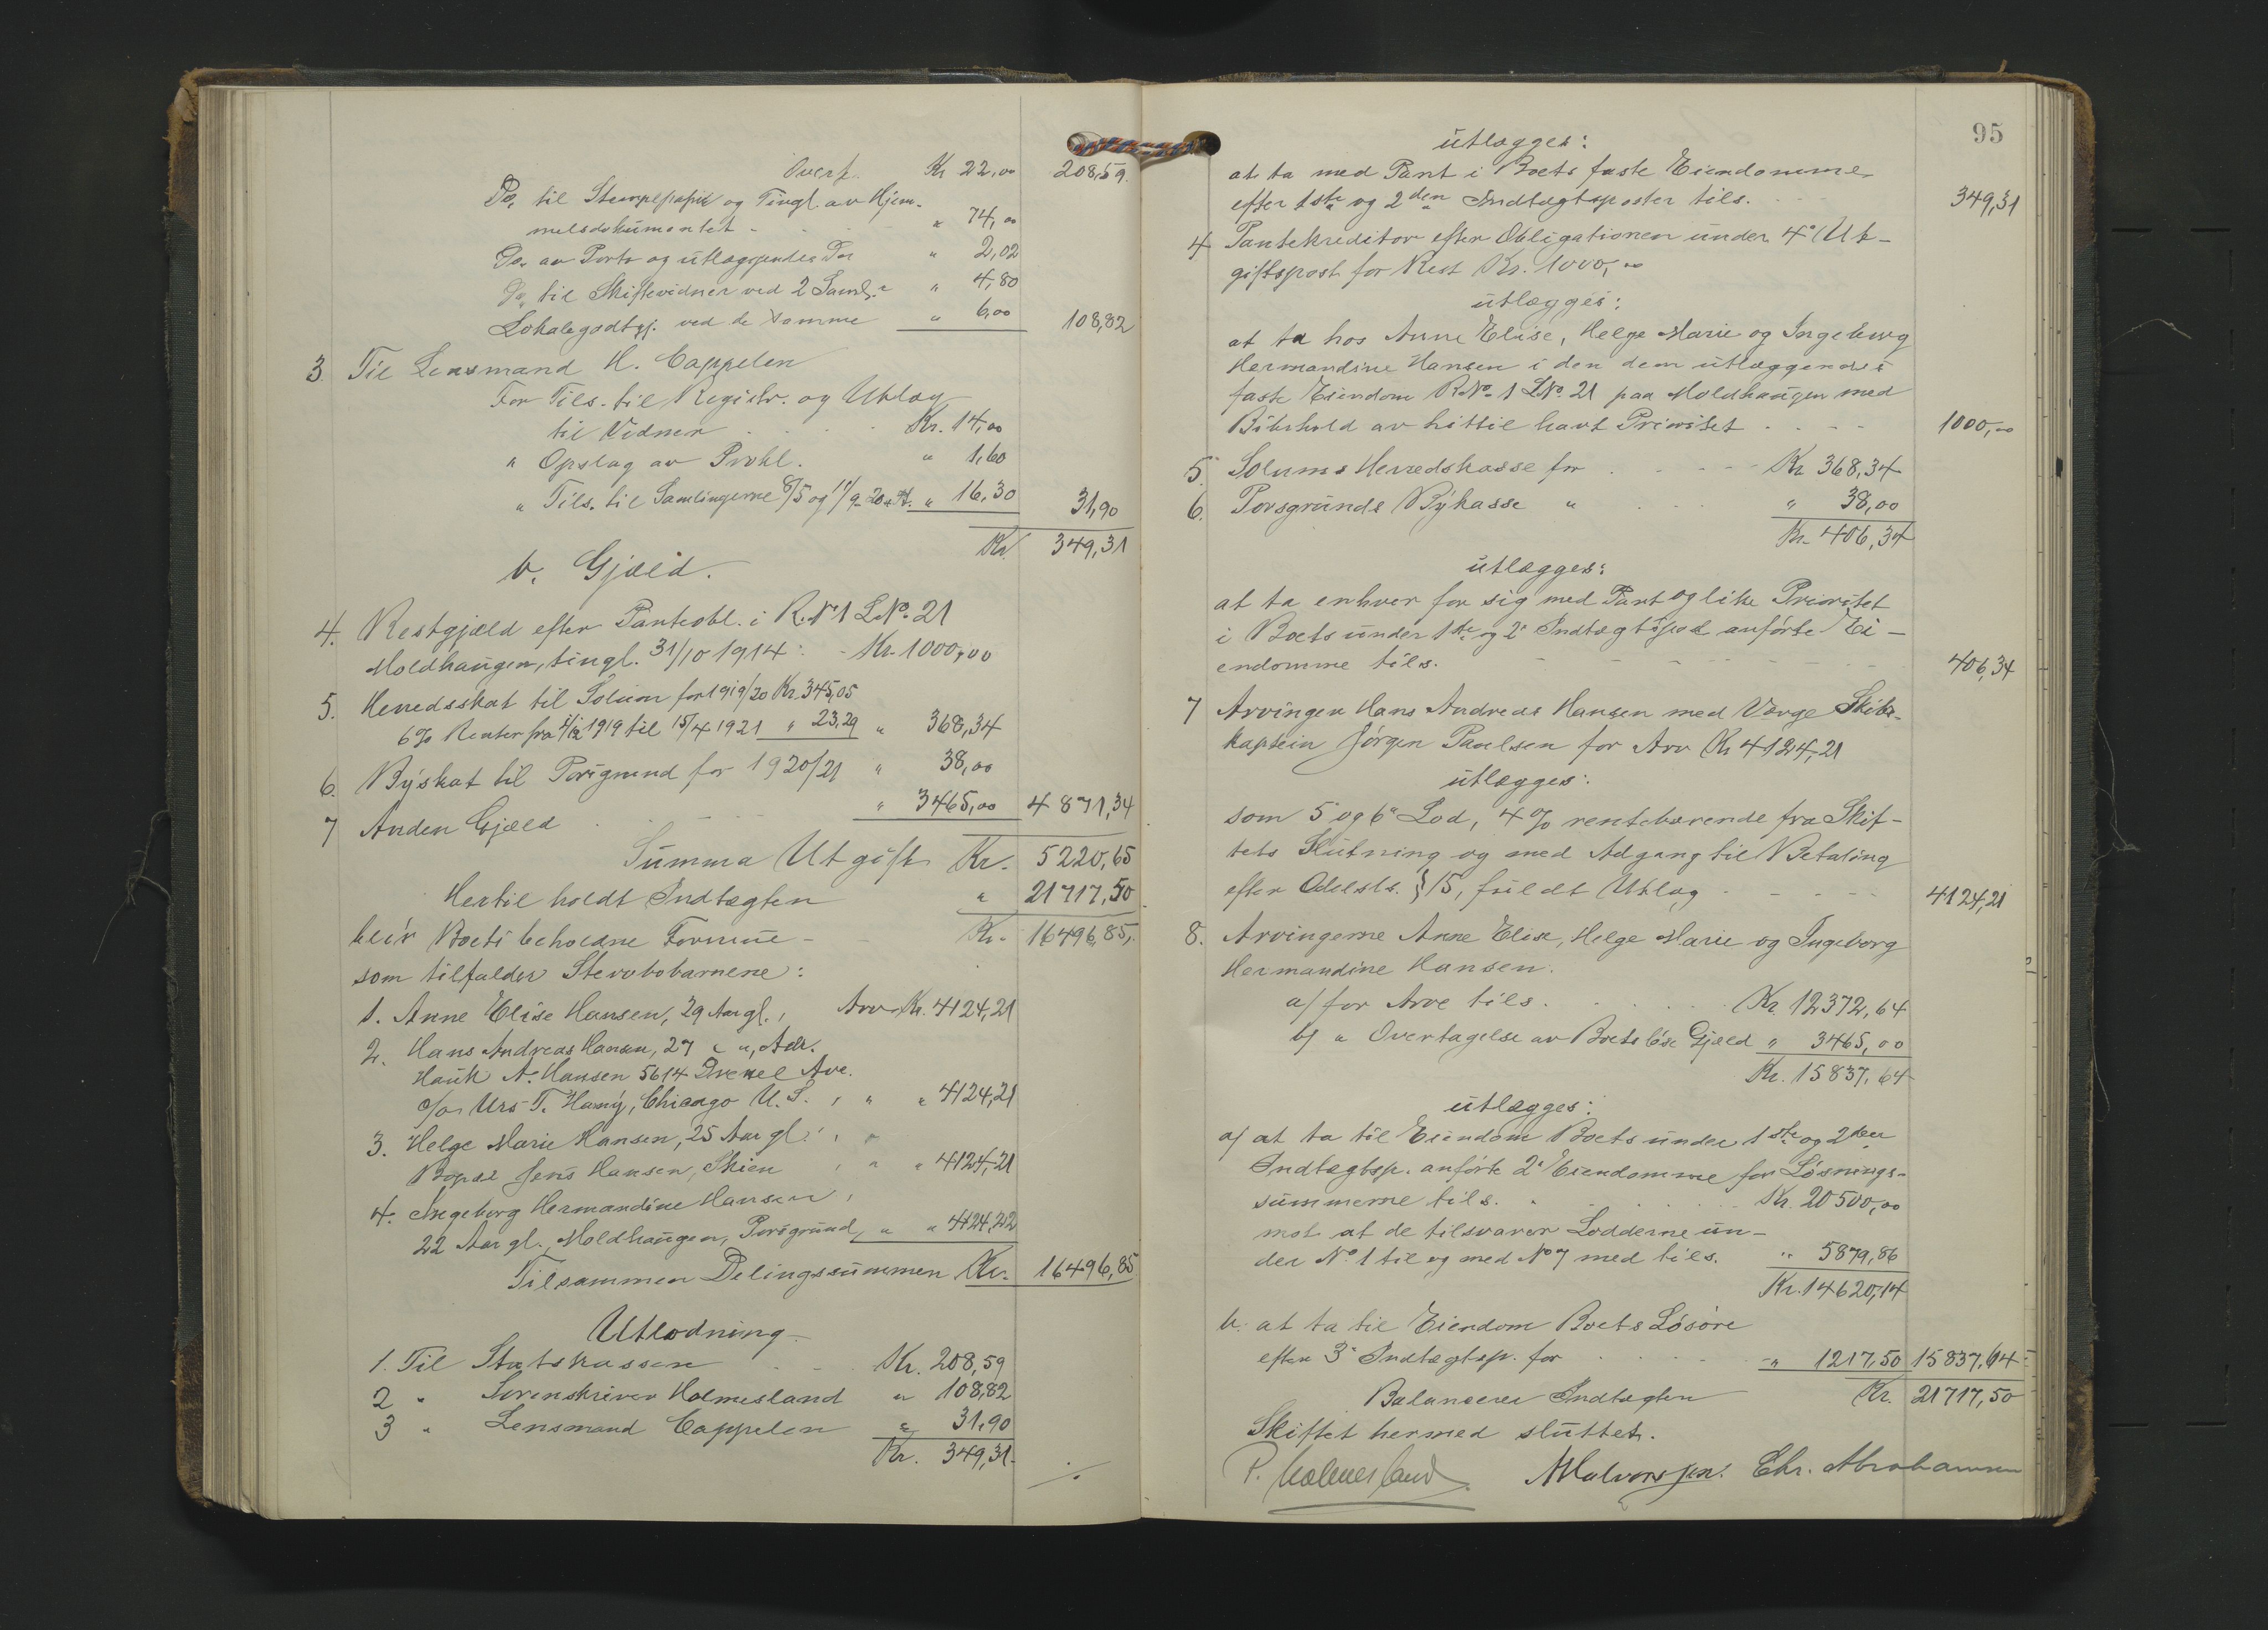 Overf. Kr 22,00 208,59.
Do. til Stempelpapir og Tingl. av Hjem-
melsdokumentet - " 74,00
Do. av Porto og utlægspenden Do " 2,02
Do. til Skiftevidner ved 2 Saml. " 4,80
Lokalegodtgj. ved de samme " 6,00 108,82
3. Til Lensmand H. Cappelen
For Tils. til Registr. og Utlæg
til Vidner Kr. 14,00
" Opslag av Prokl. " 1,60
" Tils. til Samlingerne 8/5 og 11/9-20 " 16,30 31,90
Kr. 349,31
b. Gjæld.
4. Restgjæld efter Panteobl. i R.No 1 L.No. 21
Moldhaugen, tingl. 31/10 1914: - Kr. 1000,00
5. Herredsskat til Solum for 1919/20 Kr. 345,05
6% Renter fra 1/12 1919 til 15/4 1921 " 23,29 " 368,34
6. Byskat til Porsgrund for 1920/21 " 38,00
7 Anden Gjæld " 3465,00 4871,34
Summa Utgift Kr. 5220,65
Hertil holdt Indtægten " 21717,50
blir Boets beholdne Formue - Kr. 16496,85,
som tilfalder Stervbobarnene:
1. Anne Elise Hansen, 29 Aar gl., Arv Kr. 4124,21
2. Hans Andreas Hansen, 27 " ", Adr.
Hauk A. Hansen 5614 Drexel Ave.
c/o Mrs T. Hamy, Chicago U.S. , " " 4124,21
3. Helge Marie Hansen, 25 Aar gl.,
Bopæl Jens Hansen, Skien , " " 4124,21
4. Ingeborg Hermandine Hansen,
22 Aar gl., Moldhaugen, Porsgrund, " " 4124,22
Tilsammen Delingssummen Kr. 16496,85
Utlodning
1. Til Statskassen - - Kr. 208,59
2 " Sorenskriver Holmesland " 108,82
3 " Lensmand Cappelen " 31,90
Kr. 349,31.
./.
95
utlægges:
at ta med Pant i Boets faste Eiendomme
efter 1ste og 2den Indtægtsposter tils. 349,31
4 Pantekreditor efter Obligationen under 4° Ut-
giftspost for Rest Kr. 1000,00
utlægges:
at ta hos Anne Elise, Helge Marie og Ingeborg
Hermandine Hansen i den dem utlæggendes
faste Eiendom R.No. 1 L.No. 21 paa Moldhaugen med
Bibehold av hittil havt Prioritet - - - - 1000,00
5. Solums Herredskasse for - - - - Kr. 368,34
6. Porsgrunds Bykasse " " 38,00
Kr. 406,34
utlægges:
at ta enhver for sig med Pant og like Prioritet
i Boets under 1ste og 2° Indtægtspost anførte Ei-
endomme tils. - - - - - - - 406,34
7 Arvingen Hans Andreas Hansen med Værge Skibs-
kaptein Jørgen Paulsen for Arv Kr 4124,21
utlægges:
som 5° og 6° Lod, 4% rentebærende fra Skif-
tets Slutning og med Adgang til Betaling
efter Odelsls. § 15, fuldt Utlæg - - - - 4124,21
8. Arvingerne Anne Elise, Helge Marie og Ingeborg
Hermandine Hansen.
a/ for Arve tils. Kr. 12372,64
b/ " Overtagelse av Boets løse Gjæld " 3465,00
Kr. 15837,64
utlægges:
a/ at ta til Eiendom Boets under 1ste og 2den
Indtægtsp. anførte 2° Eiendomme for Løsnings-
summerne tils. Kr. 20500,00
mot at de tilsvarer Lodderne un-
der No. 1 til og med No 7 med tils. " 5879,86
Kr. 14620,14
b. at ta til Eiendom Boets Løsøre
efter 3° Indtægtsp. for - " 1217,50 15837,64
Balancerer Indtægten Kr. 21717,50
Skiftet hermed sluttet.
P. Holmesland A Halvorsen. Chr. Abrahamsen